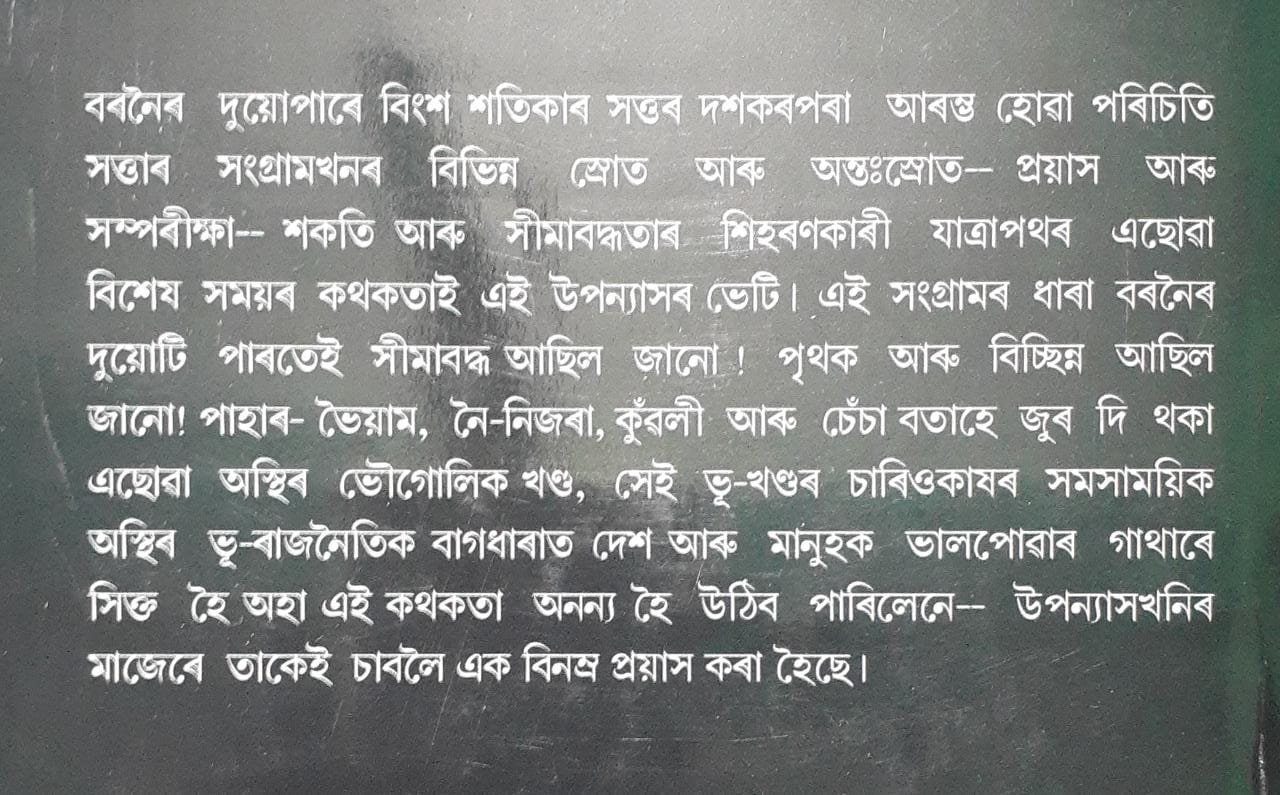 বৰনৈৰ দুয়োপাৰে বিংশ শতিকাৰ সত্তৰ দশকৰপৰা আৰম্ভ হোৱা পৰিচিতি
সত্তাৰ সংগ্ৰামখনৰ বিভিন্ন স্ৰোত আৰু অন্তঃস্ৰোত-- প্ৰয়াস আৰু
সম্পৰীক্ষা-- শকতি আৰু সীমাবদ্ধতাৰ শিহৰণকাৰী যাত্ৰাপথৰ এছোৱা
বিশেষ সময়ৰ কথকতাই এই উপন্যাসৰ ভেটি। এই সংগ্ৰামৰ ধাৰা বৰনৈৰ
দুয়োটি পাৰতেই সীমাবদ্ধ আছিল জানো ! পৃথক আৰু বিচ্ছিন্ন আছিল
জানো! পাহাৰ- ভৈয়াম, নৈ-নিজৰা, কুঁৱলী আৰু চেঁচা বতাহে জুৰ দি থকা
এছোৱা অস্থিৰ ভৌগোলিক খণ্ড, সেই ভূ-খণ্ডৰ চাৰিওকাষৰ সমসাময়িক
অস্থিৰ ভূ-ৰাজনৈতিক বাগধাৰাত দেশ আৰু মানুহক ভালপোৱাৰ গাথাৰে
সিক্ত হৈ অহা এই কথকতা অনন্য হৈ উঠিব পাৰিলেনে-- উপন্যাসখনিৰ
মাজেৰে তাকেই চাবলৈ এক বিনম্ৰ প্ৰয়াস কৰা হৈছে।